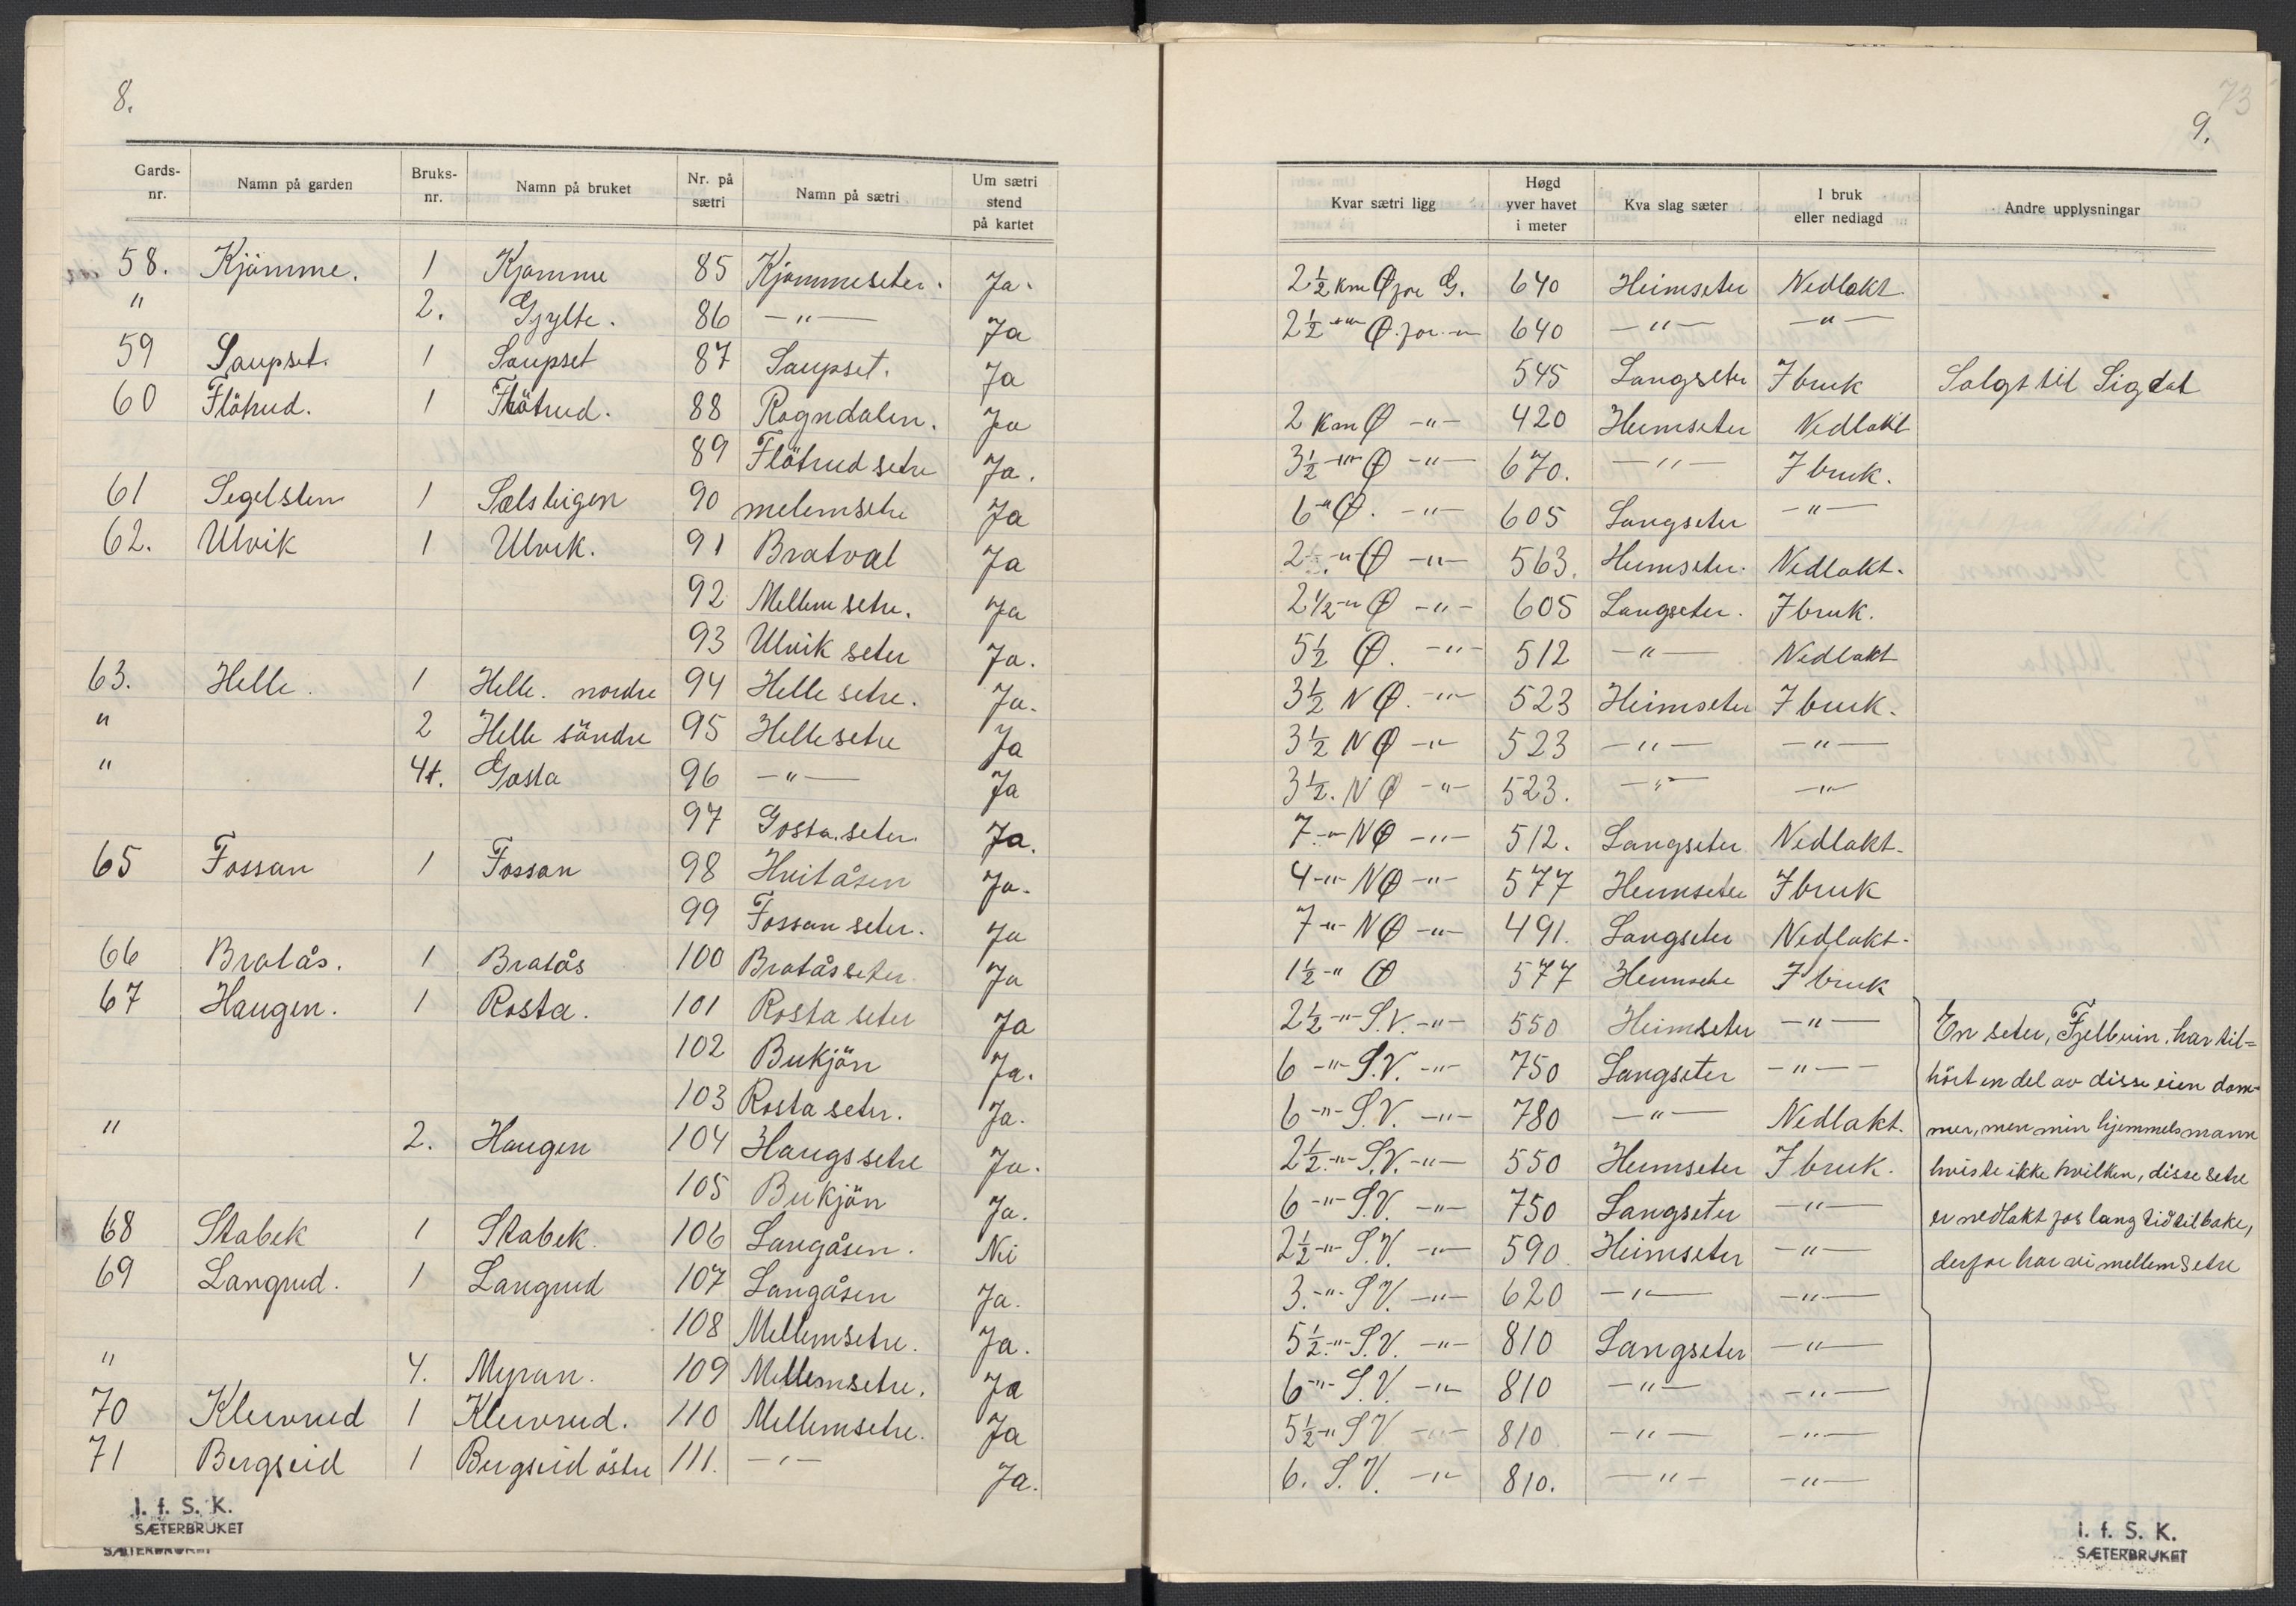 8.
Gards-nr. Namn på garden Bruks-nr. Namn på bruket Nr. på sætri Namn på sætri Um sætri stend på kartet
58. Kjömme. 1 Kjømme 85 Kjømmeseter. Ja.
" 2. Gjylte. 86 —"— Ja
59 Saupset. 1 Saupset 87 Saupset. Ja
60 Flöhud. 1 Flöhud. 88 Rogndalen. Ja
89 Flöhud setre Ja.
61 Segelsten 1 Sælsteigen 90 melemsetre Ja
62. Ulvik 1 Ulvik. 91 Bratval Ja
92 Mellem setre. Ja
93 Ulvik seter Ja.
63. Helle. 1 Helle. nordre 94 Helle setre. Ja.
" 2 Helle söndre 95 Helle setre Ja
" 4. Gosta 96 —"— Ja
97 Gosta. seter. Ja.
65 Fossan 1 Fossan 98 Hvitåsen Ja.
99 Fossan seter. Ja
66 Bratås. 1 Bratås 100 Bratås seter Ja
67 Haugen. 1 Rosta. 101 Rosta seter Ja
102 Bukjön Ja.
103 Rosta seter. Ja.
" 2. Haugen 104 Haugs setre Ja.
105 Bukjön Ja.
68 Stabek 1 Stabek 106 Langåsen. Nei
69 Langrud. 1 Langrud 107 Langåsen Ja.
108 Mellemsetre. Ja.
" 4. Myran. 109 Mellemsetre. Ja
70 Klevrud 1 Klevrud. 110 Mellemsetre. Ja
71 Bergseid 1 Bergseid östre 111. —"— Ja.
I. f. S. K.
SÆTERBRUKET
SÆTERBRUKET
73
9.
Kvar sætri ligg Høgd yver havet i meter Kva slag sæter I bruk eller nedlagd Andre upplysningar
2½ km Ø for G. 640 Heimseter Nedlakt
2½ —"— Ø. for —"— 640 —"— —"—
545 Langseter I bruk Solgt til Sigdal
2 km Ø —"— 420 Heimseter Nedlakt
3½ —"— Ø —"— 670. —"— I bruk.
6 —"— Ø. —"— 605 Langseter —"—
2½ —"— Ø —"— 563. Heimseter. Nedlakt.
2½ —"— Ø —"— 605 Langseter. I bruk.
5½ Ø. —"— 512 —"— Nedlakt
3½ N Ø. —"— 523 Heimseter I bruk.
3½ N Ø —"— 523 —"— —"—
3½. N Ø —"— 523. —"— —"—
7 —"— NØ —"— 512. Langseter Nedlakt.
4 —"— NØ —"— 577 Heimseter I bruk
7 —"— NØ —"— 491. Langseter Nedlakt.
1½ —"— Ø 577 Heimsetre I bruk
2½ —"— S.V. —"— 550 Heimseter —"— En seter, Fjellvin. har til=
6 —"— S.V. —"— 750 Langseter —"— hört en del av disse eien dom-
6 —"— S.V. —"— 780 —"— Nedlakt. mer, men min hjemmelsmann
2½. —"— S.V. —"— 550 Heimseter I bruk. hviste ikke hvilken, disse setre
6 —"— S.V. —"— 750 Langseter —"— er nedlakt for lang tid tilbake,
2½ —"— S.V. —"— 590 Heimseter —"— derfor har vi mellemsetre
3. —"— S.V. —"— 620 —"— —"—
5½. —"— S.V. —"— 810 Langseter —"—
6 —"— S.V. —"— 810 —"— —"—
5½ —"— S V —"— 810 —"— —"—
6. S.V. —"— 810. —"— —"—
I. f. S. K.
SÆTERBRUKET